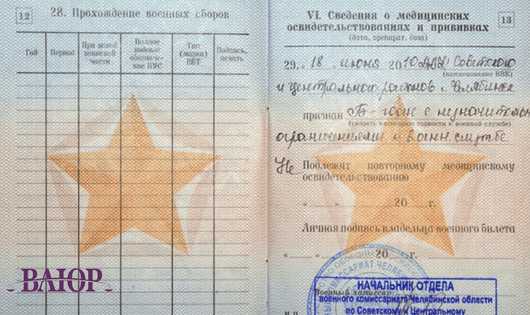 12
28. Прохождение военных сборов
Год
Период
При какой воинской части
Полное кодовое обозначение ВУС
Тип (марка) ВВТ
Подпись, печать
ВАЮР
13
VI. Сведения о медицинских
освидетельствованиях и прививках
(дата, препарат, доза)
29. 18 июня 2010 Советского
(наименование ВВК)
и центрального районов г. Челябинска
признан "Б" - годен с незначительн
(указать категорию годности к военной службе)
ограничениями к воен. службе
Не Подлежит повторному медицинскому
освидетельствованию
" " 20 г.
Личная подпись владельца военного билета
20 г.
Военный комиссар
НАЧАЛЬНИК ОТДЕЛА
военного комиссариата Челябинской области
по Советскому и Центральному